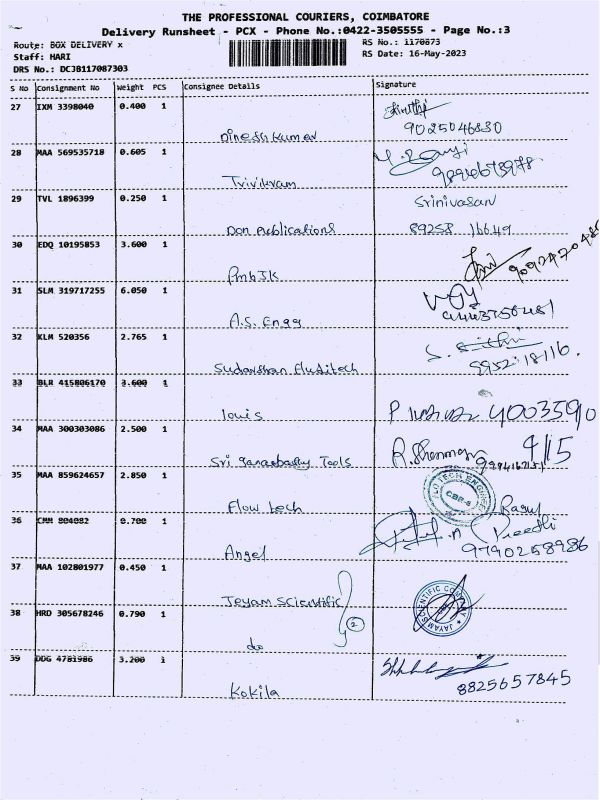 THE PROFESSIONAL COURIERS, COIMBATORE
Delivery Runsheet - PCX - Phone No.:0422-3505555 - Page No.:3
Route: BOX DELIVERY x
RS No.: 1170873
Staff: HARI
RS Date: 16-May-2023
DRS No.: DC3B117087303
S No Consignment No Weight PCS Consignee Details Signature
27 IXM 3398040 0.400 1
Dinesh Kumar 9025046830
28 MAA 569535718 0.605 1
Trivikram
29 TVL 1896399 0.250 1 Srinivasan
Don Publications 89258 16649
30 EDQ 10195853 3.600 1
9092470485
31 SLM 319717255 6.050 1
A.S. Engg
32 KLM 520356 2.765 1
Sudarshan Fluditech
33 BLR 415806170 3.600 1
louis 4003590
34 MAA 300303086 2.500 1
Sri Tools
35 MAA 859624657 2.850 1
Flow tech
36 CMM 804082 0.700 1
Angel 9790258986
37 MAA 102801977 0.450 1
Jeyam Scientific
38 HRD 305678246 0.790 1
do 2
JAYAM SCIENTIFIC COMPANY
39 DDG 4781986 3.200 1
Kokila 8825657845